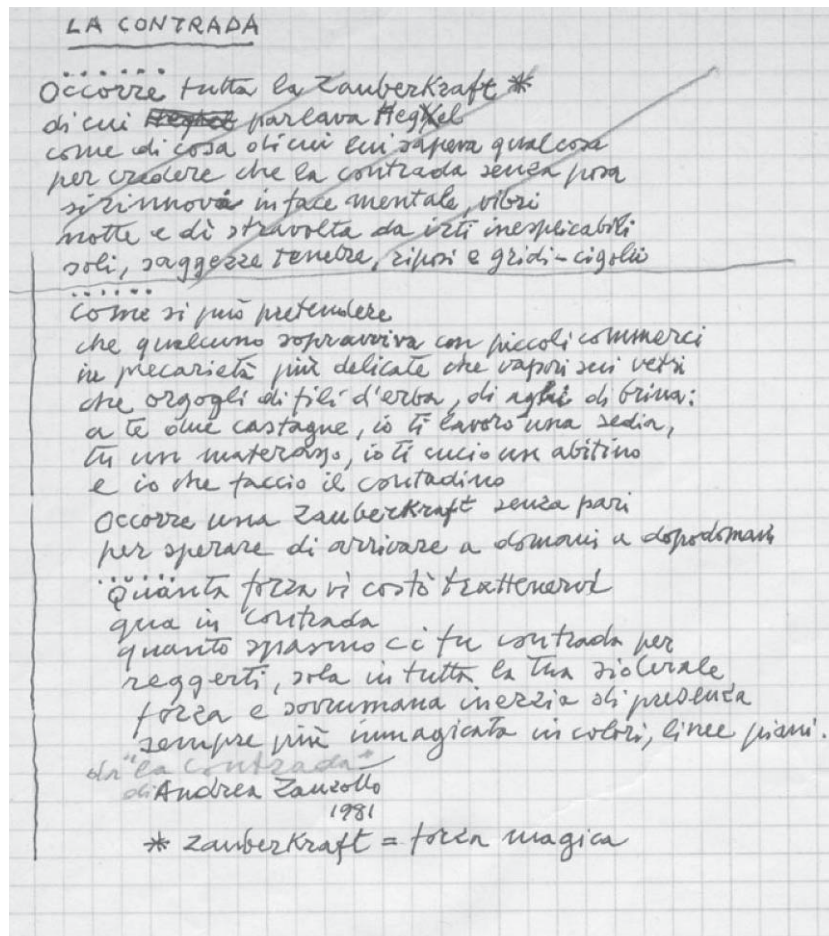 LA CONTRADA
. . . . . .
Occorre tutta la Zauberkraft *
di cui parlava Hegel
come di cosa di cui lui sapeva qualcosa
per credere che la contrada senza posa
si rinnovi in face mentale, vibri
notte e dì stravolta da irti inesplicabili
soli, saggezze tenebre, riposi e gridi-cigolii
. . . . . .
Come si può pretendere
che qualcuno sopravviva con piccoli commerci
in precarietà più delicate che vapori sui vetri
che orgogli di fili d'erba, di aghi di brina:
a te due castagne, io ti lavoro una sedia,
tu un materasso, io ti cucio un abitino
e io che faccio il contadino
Occorre una Zauberkraft senza pari
per sperare di arrivare a domani a dopodomani
. . . . . .
Quanta forza vi costò trattenervi
qua in contrada
quanto spasimo ci fu contrada per
reggerti, sola in tutta la tua
forza e sovrumana inerzia di presenza
sempre più immagicata in colori, linee piani.
da "la contrada"
di Andrea Zanzotto
1981
* Zauberkraft = forza magica